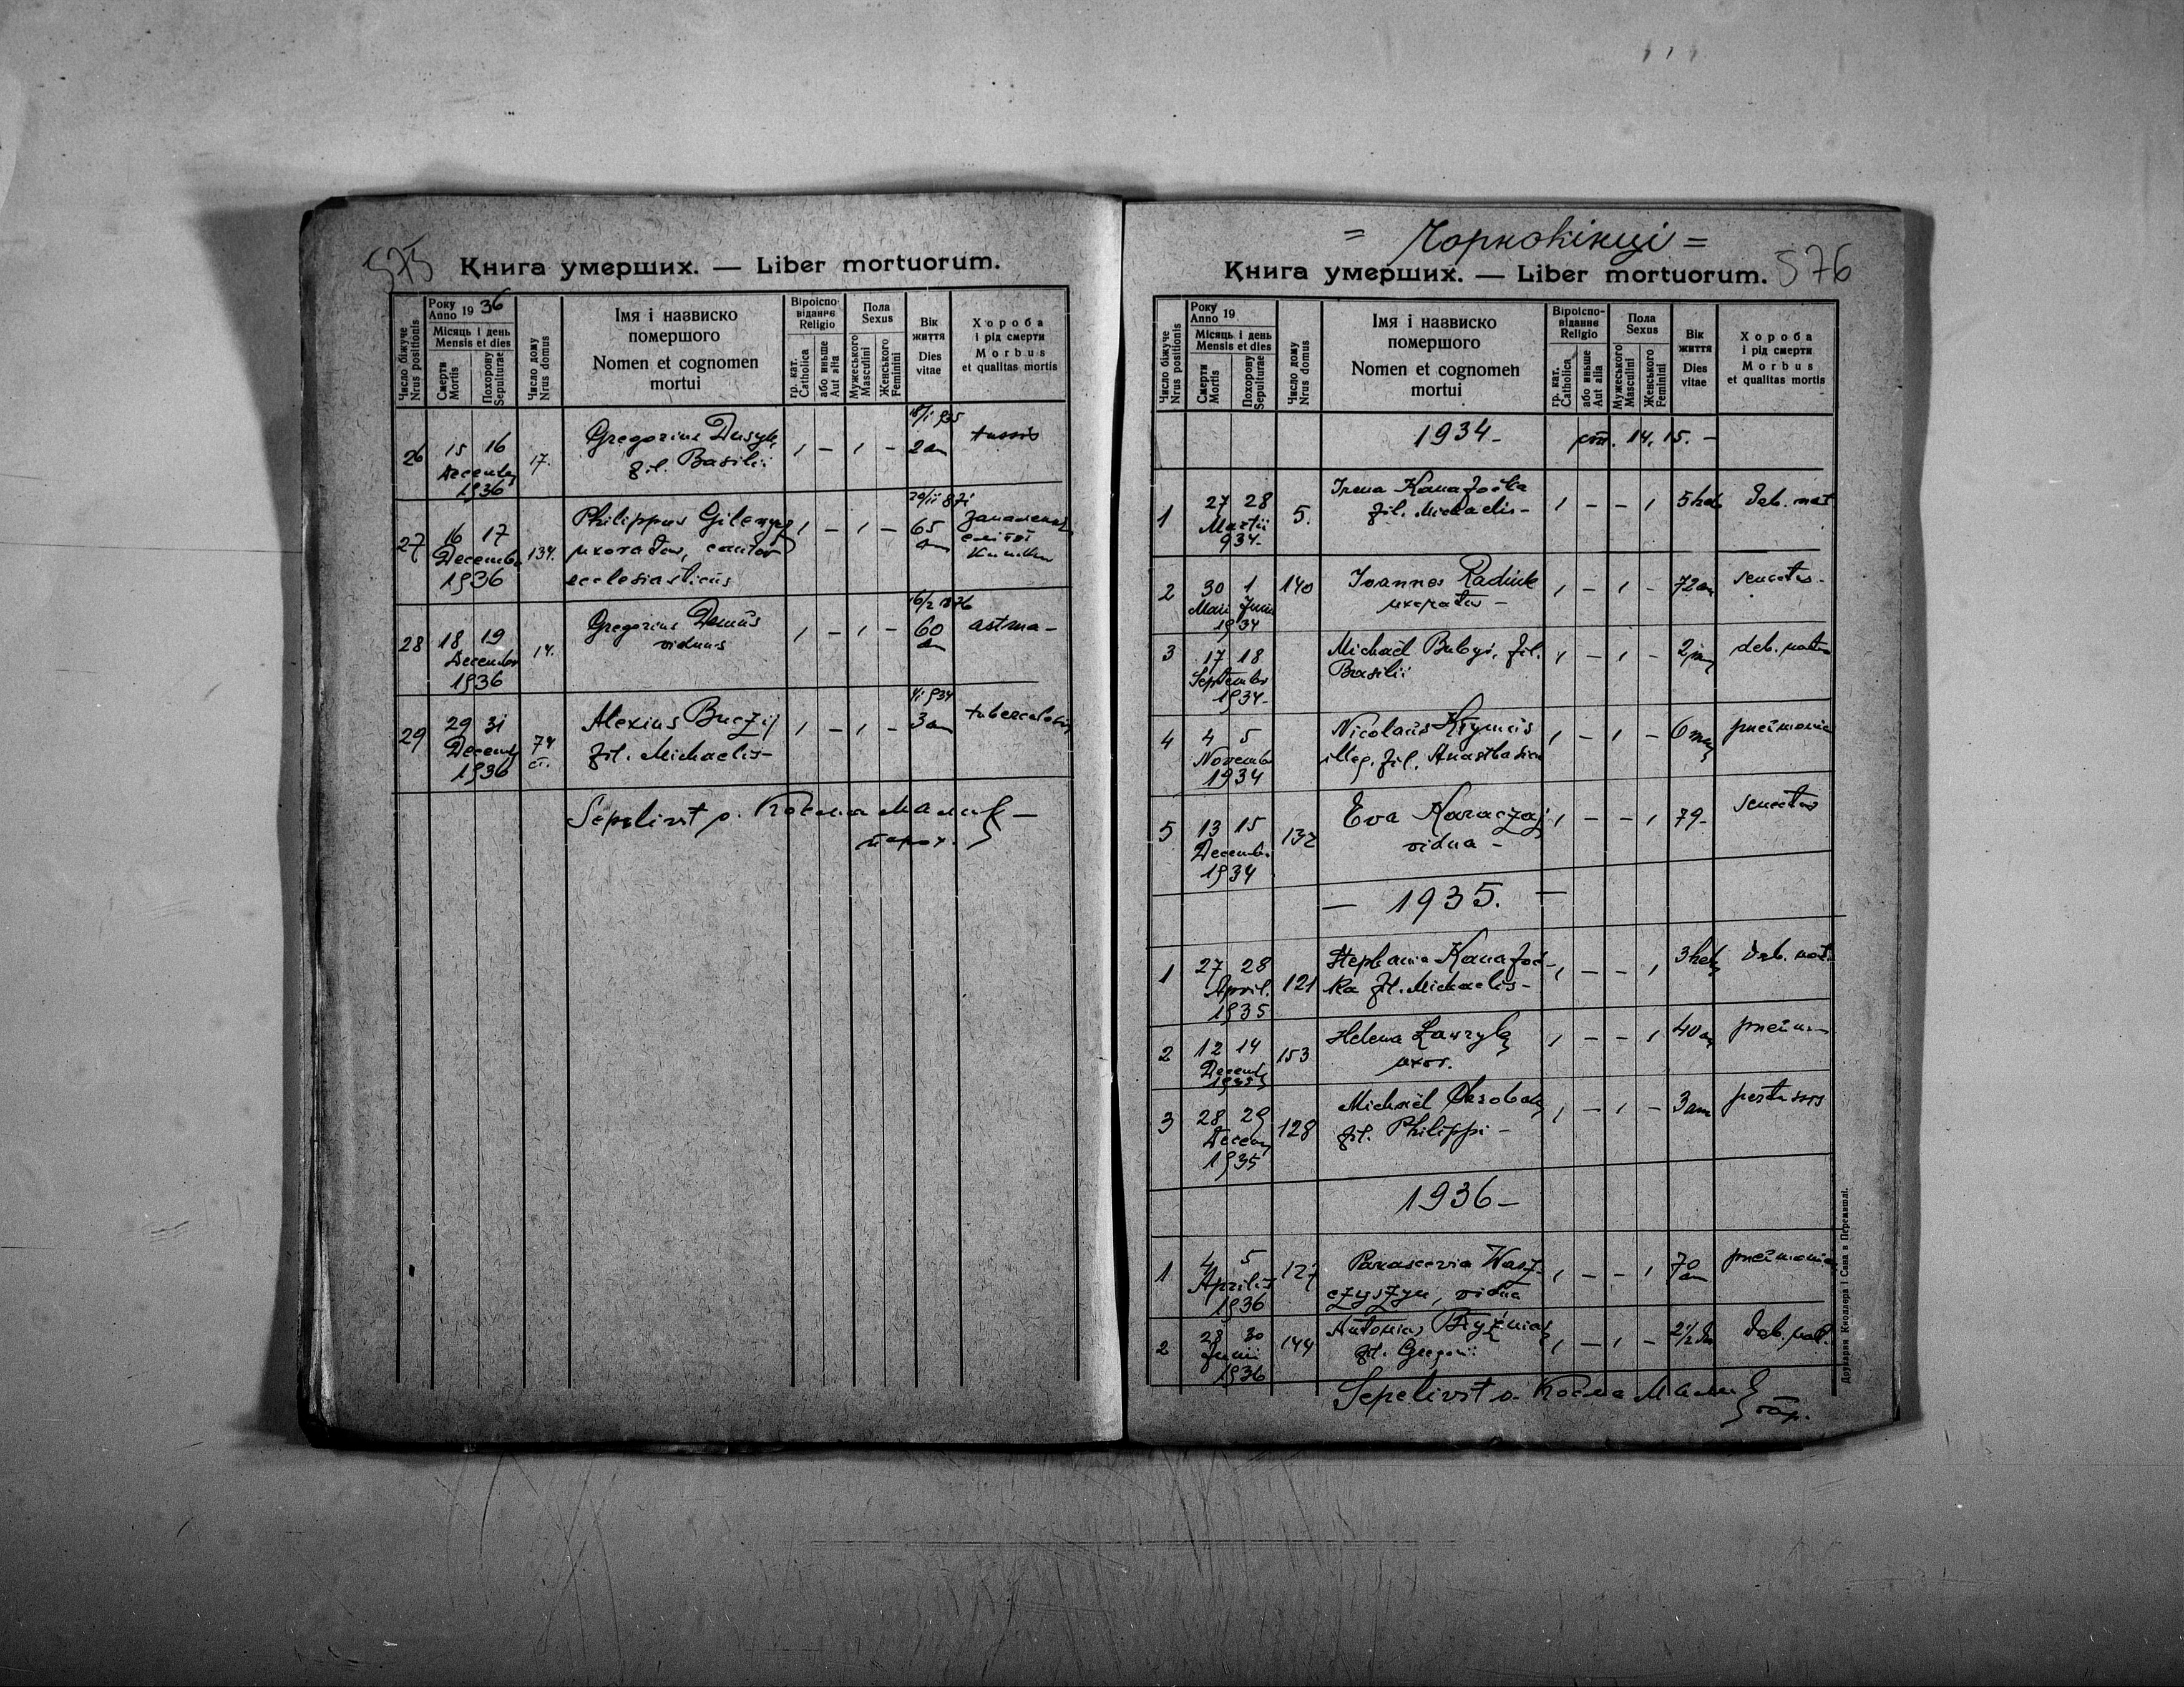 575
Книга умерших. — Liber mortuorum.
Число біжуче Nrus positionis
Року Anno 1936
Місяць і день Mensis et dies
Смерти Mortis
Похорону Sepulturae
Число дому Nrus domus
Імя і назвиско помершого
Nomen et cognomen mortui
Віроісповіданнє Religio
гр. кат. Catholica
або иньше Aut alia
Пола Sexus
Мужеського Masculini
Женського Feminini
Вік життя Dies vitae
Хороба і рід смерти
Morbus et qualitas mortis
26 15 16 17. Gregorius Dusyk 1 – 1 – 2 an tussis
Decemb fil. Basilii
1936
27 16 17 134. Philippus 1 – 1 – 65
Decembr uxoratus, cantor an
1936 ecclesiasticus
28 18 19 14. Gregorius 1 – 1 – 60 astma –
Decembr viduus an
1936
29 29 31 74 Alexius Buczij 1 – 1 – 3 an tuberculosis
Decemb fil. Michaelis –
1936
Sepelivit o. Косма –
парох.
= Чорнокінці =
576
Книга умерших. — Liber mortuorum.
Число біжуче Nrus positionis
Року Anno 19
Місяць і день Mensis et dies
Смерти Mortis
Похорону Sepulturae
Число дому Nrus domus
Імя і назвиско помершого
Nomen et cognomen mortui
Віроісповіданнє Religio
гр. кат. Catholica
або иньше Aut alia
Пола Sexus
Мужеського Masculini
Женського Feminini
Вік життя Dies vitae
Хороба і рід смерти
Morbus et qualitas mortis
1934 – 14. 15. –
1 27 28 5. Irena 1 – – 1 5 deb. nat
Martii fil. Michaelis –
934.
2 30 1 140 Joannes Radiuk 1 – 1 – 72 an senectus –
Maii Junii uxoratus –
1934
3 17 18 Michaël fil. 1 – 1 – 2 deb. nat
Septembr Basilii
1934 –
4 4 5 Nicolaus 1 – 1 – 6 pneumonia
Novembr illeg. fil. Anasthasiae
1934
5 13 15 132 Eva Karaczaj 1 – – 1 79 – senectus
Decembr vidua –
1934
— 1935. —
1 27 28 121 Stephania 1 – – 1 3 deb. nat.
April. fil. Michaelis –
1935
2 12 14 153 Helena 1 – – 1 40 an pneum
Decemb uxor.
1935
3 28 29 128 Michaël 1 – 1 – 3 an pertussis
Decem fil. Philippi –
1935
1936 –
1 4 5 127 Parascevia Wasz- 1 – – 1 70 pneumonia
Aprilis czyszyn, vidua an
1936
2 28 30 144 Antonius 1 – 1 – 2½ deb. nat.
Junii fil. Gregorii
1936
Sepelivit o. Косма
пар.
Друкарня Кноллера і Сина в Перемишлі.